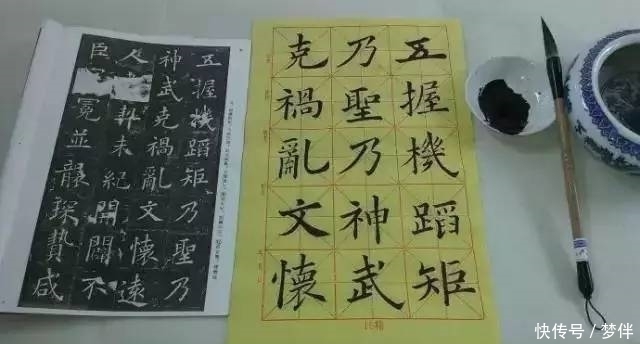 五握機蹈矩乃聖乃
神武克禍亂文懷遠
人未紀開闢不
臣冕並襲琛贄咸
五握機蹈矩
乃聖乃神武
克禍亂文懷
快传号 / 梦伴